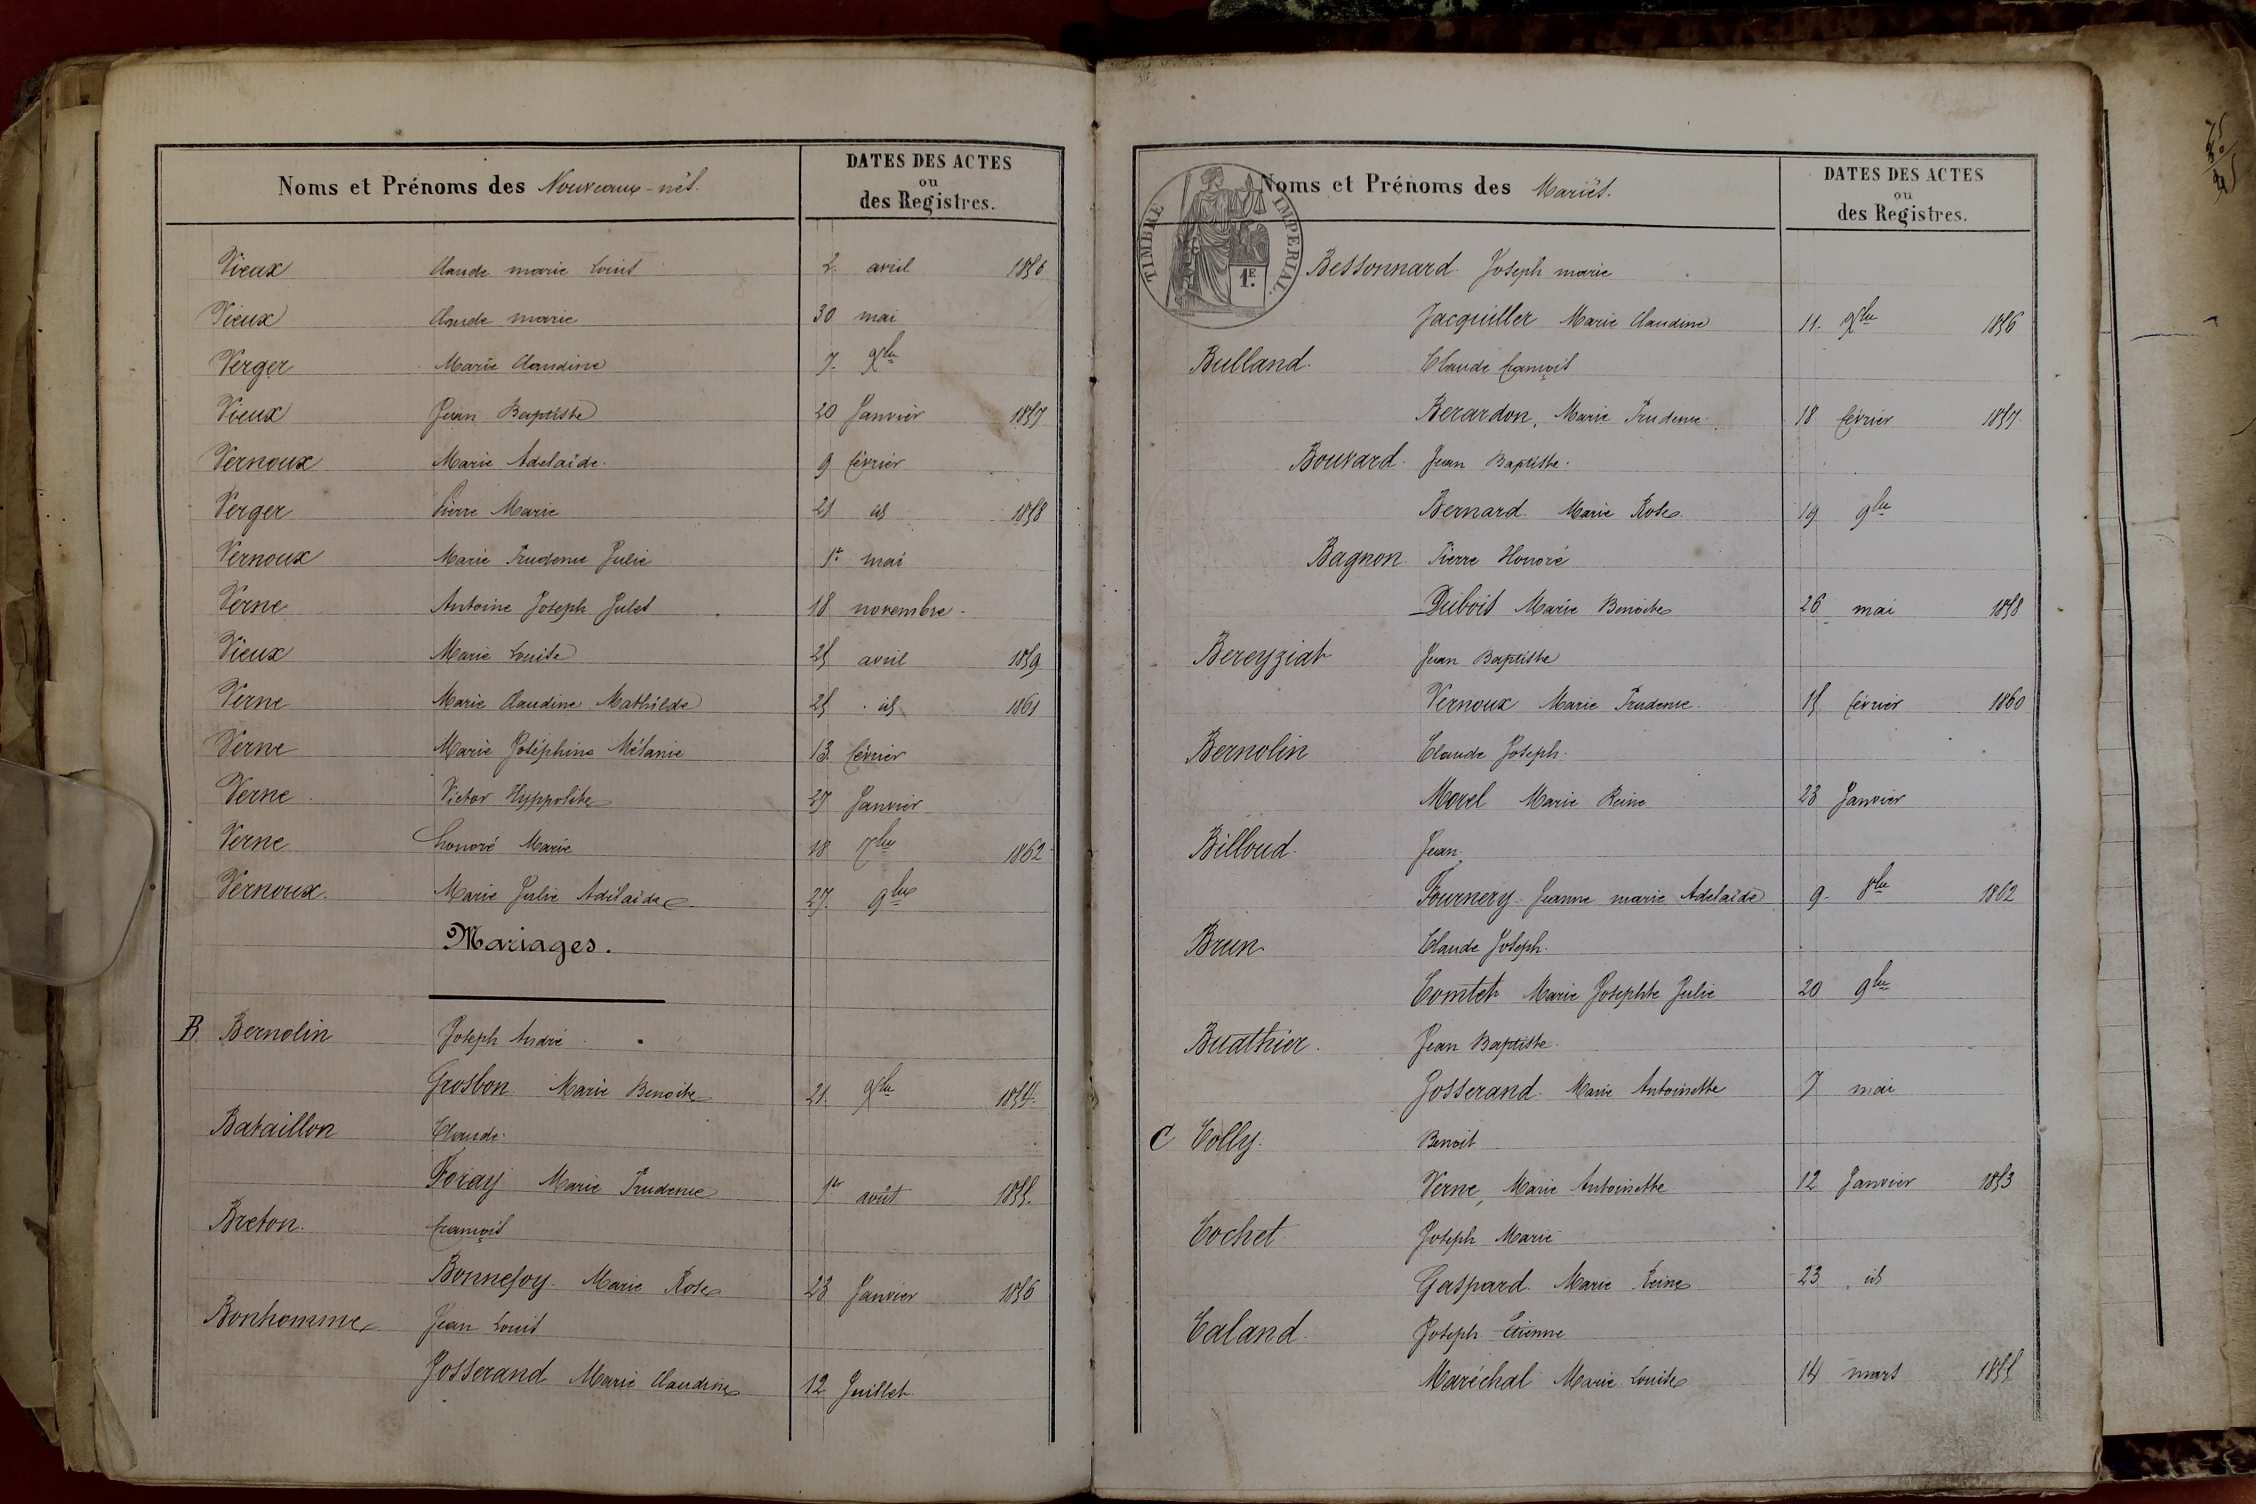 Noms et Prénoms des Nouveaux-nés.
DATES DES ACTES
ou
des Registres.
Vieux Claude marie Louis 2. avril 1856
Vieux Claude marie 30 mai
Verger Marie Claudine 7. Xbre
Vieux Jean Baptiste 20 Janvier 1857
Vernoux Marie Adelaïde. 9 février
Verger Pierre Marie 21 id 1858
Vernoux Marie Prudence Julie 1er mai
Verne Antoine Joseph Jules 18 novembre.
Vieux Marie Louise 25 avril 1859
Verne Marie Claudine Mathilde 25 id 1861
Verne Marie Joséphine Mélanie 13 février
Verne Victor Hyppolite 27 Janvier
Verne honoré Marie 18 7bre 1862
Vernoux. Marie Julie Adélaïde 27. 9bre
Mariages.
B. Bernolin Joseph André
Grosbon Marie Benoite 21. Xbre 1854.
Bataillon Claude.
Foray Marie Prudence 1er août 1855.
Breton. françois
Bonnefoy. Marie Rose 23 Janvier 1856
Bonhomme Jean Louis
Josserand Marie Claudine 12 Juillet
Noms et Prénoms des Mariés.
DATES DES ACTES
ou
des Registres.
TIMBRE IMPERIAL.
1F.
Bessonnard. Joseph marie
Jacquiller Marie Claudine 11. Xbre 1856
Bulland. Claude françois
Berardon, Marie Prudence. 18 février 1857.
Bouvard. Jean Baptiste.
Bernard. Marie Rose. 19 9bre
Bagnon. Pierre Honoré
Dubois Marie Benoite 26 mai 1858
Bereyziat Jean Baptiste
Vernoux Marie Prudence. 15 février 1860
Bernolin Claude Joseph.
Morel Marie Reine 23 Janvier
Billoud. Jean.
Fournery. Jeanne marie Adelaïde 9. 8bre 1862
Brun Claude Joseph.
Comtet Marie Josephte Julie 20 9bre
Buathier. Jean Baptiste.
Josserand. Marie Antoinette 7 mai
C Colly. Benoit
Verne, Marie Antoinette 12 Janvier 1853
Cochet Joseph Marie
Gaspard. Marie Reine 23. id
Caland. Joseph Etienne
Maréchal Marie Louise 14 mars 1855